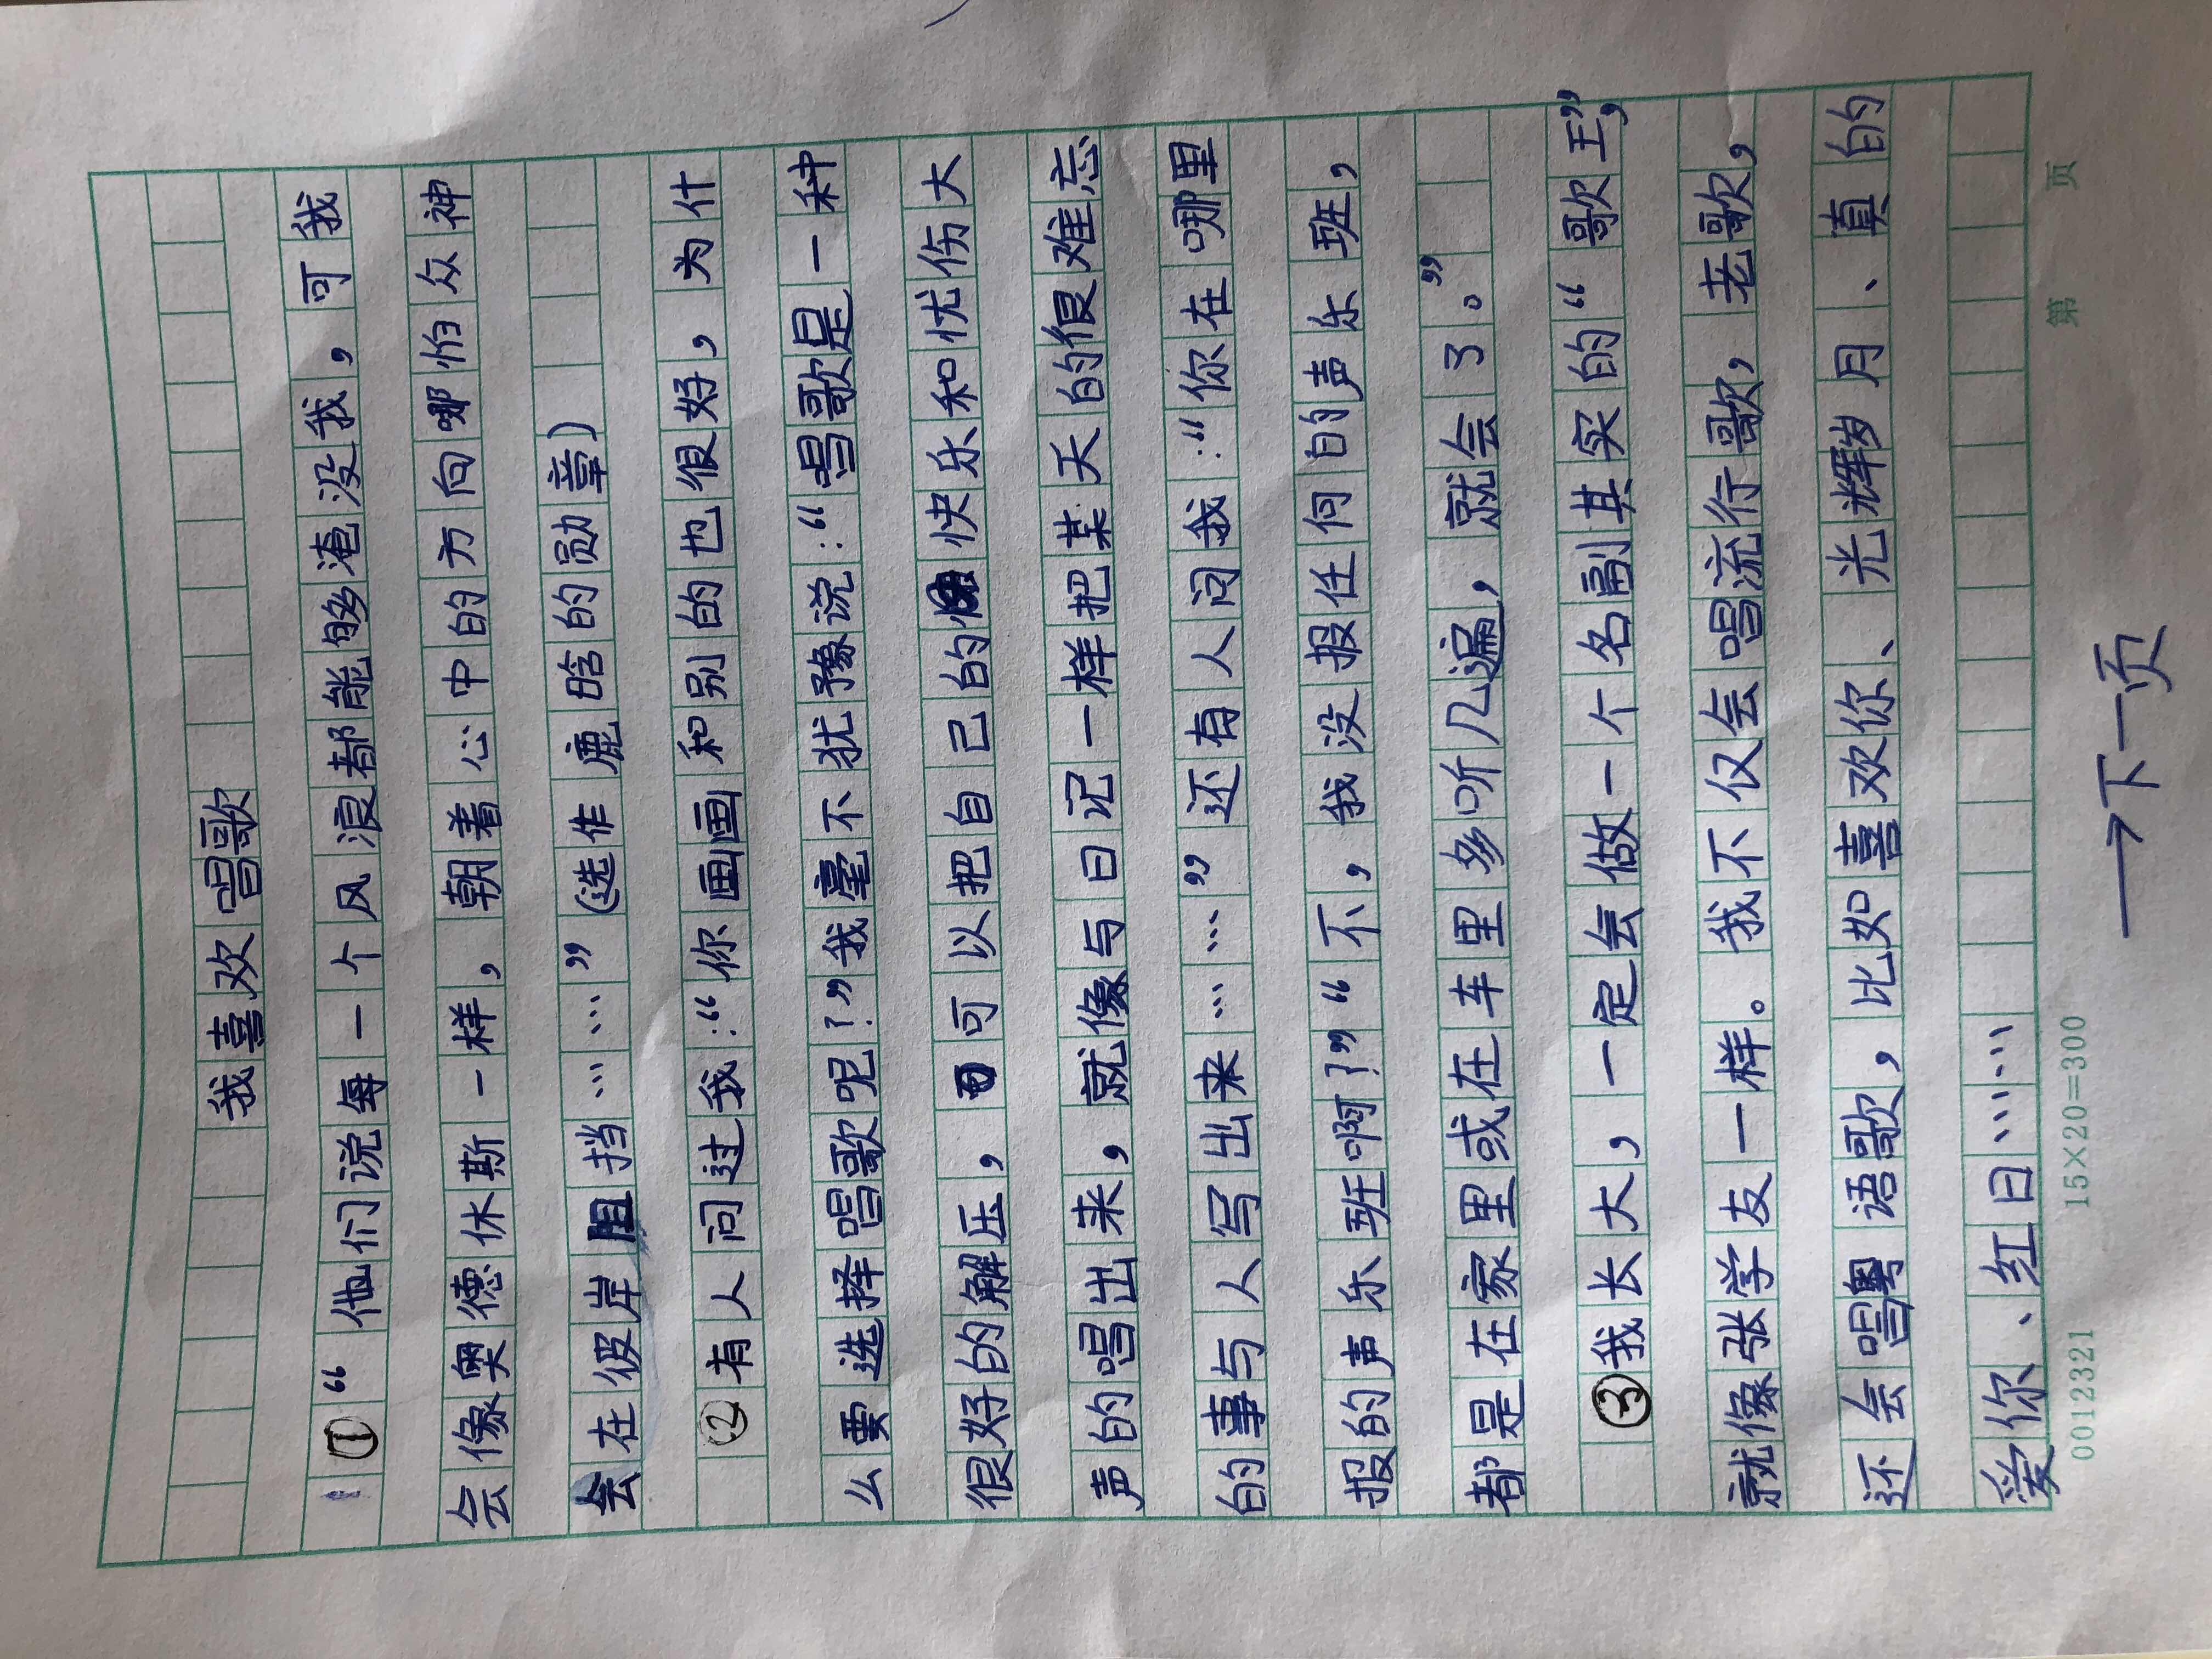 我喜欢唱歌
①“他们说每一个风浪都能够淹没我，可我
会像奥德休斯一样，朝着心中的方向哪怕众神
会在彼岸阻挡……”（选作鹿晗的勋章）
②有人问过我：“你画画和别的也很好，为什
么要选择唱歌呢？”我毫不犹豫说：“唱歌是一种
很好的解压，可以把自己的快乐和忧伤大
声的唱出来，就像与日记一样把某天的很难忘
的事与人写出来……”还有人问我：“你在哪里
报的声乐班啊？”“不，我没报任何的声乐班，
都是在家里或在车里多听几遍，就会了。”
③我长大，一定会做一个名副其实的“歌王”，
就像张学友一样。我不仅会唱流行歌，老歌，
还会唱粤语歌，比如喜欢你、光辉岁月、真的
爱你、红日……
0012321 15×20=300 第 页
→下一页